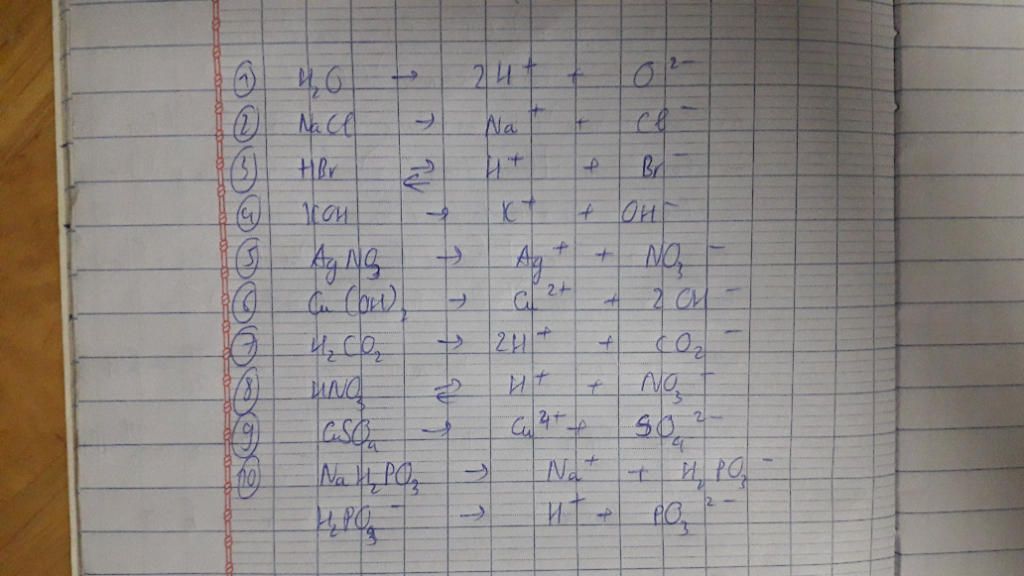 ① H₂O → 2H⁺ + O²⁻
② NaCl → Na⁺ + Cl⁻
③ HBr ⇄ H⁺ + Br⁻
④ KOH → K⁺ + OH⁻
⑤ AgNO₃ → Ag⁺ + NO₃⁻
⑥ Cu(OH)₂ → Cu²⁺ + 2OH⁻
⑦ H₂CO₂ → 2H⁺ + CO₂⁻
⑧ HNO₃ ⇄ H⁺ + NO₃⁻
⑨ CuSO₄ → + SO₄²⁻
⑩ NaH₂PO₃ → Na⁺ + H₂PO₃⁻
H₂PO₃⁻ → H⁺ + PO₃²⁻